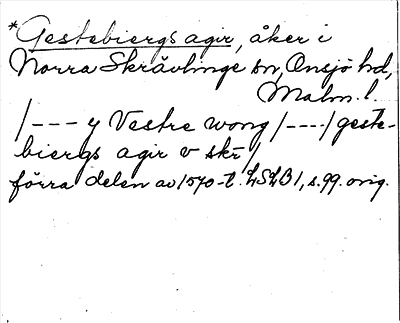 *Gestebiergs agir, åker i
Norra Skrävlinge sn, Onsjö hd,
Malm. l.
/--- y Vestre wong/----/geste-
biergs agir v skr/
förra delen av 1570-t. LSLB1, s. 99. orig.